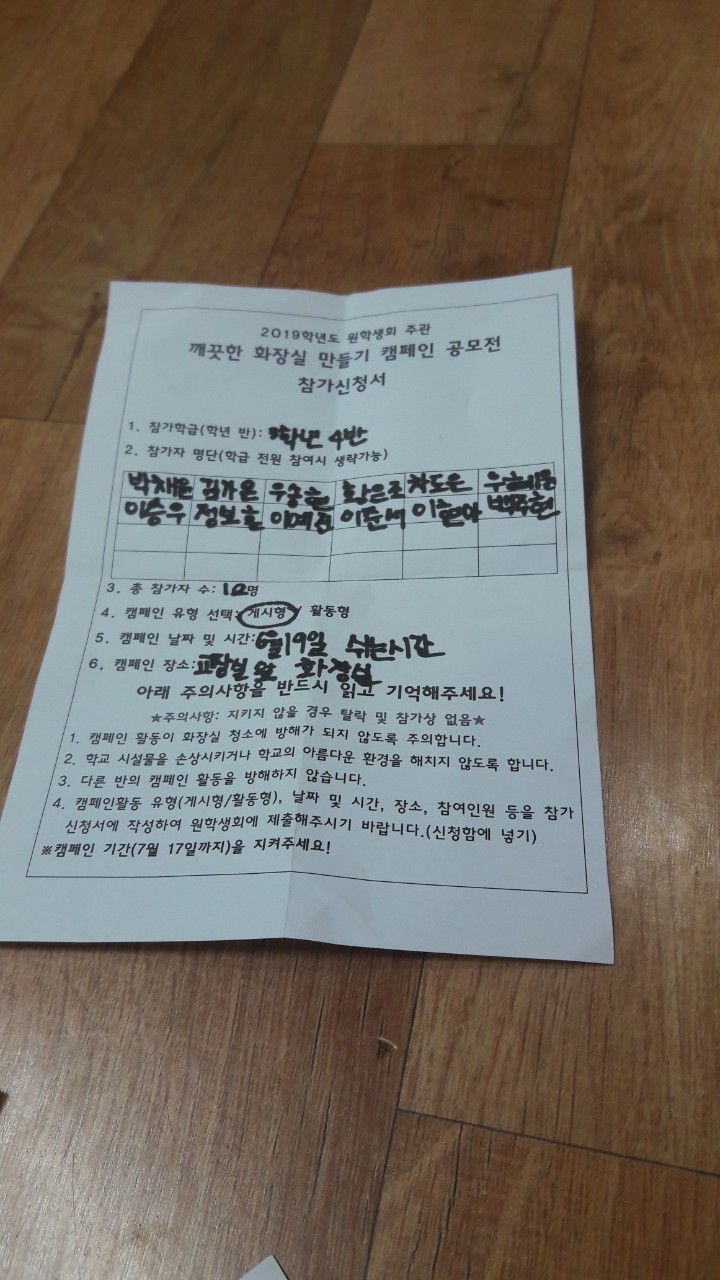 2019학년도 원학생회 주관
깨끗한 화장실 만들기 캠페인 공모전
참가신청서
1. 참가학급(학년 반): 학년 4반
2. 참가자 명단(학급 전원 참여시 생략가능)
박채원 김가온 우승현 황은조 차도은
이승우 정보흔 이예진 이준서 이현아 백주현
3. 총 참가자 수: 12명
4. 캠페인 유형 선택: 게시형 / 활동형
5. 캠페인 날짜 및 시간: 6월19일 쉬는시간
6. 캠페인 장소: 화장실
아래 주의사항을 반드시 읽고 기억해주세요!
★주의사항: 지키지 않을 경우 탈락 및 참가상 없음★
1. 캠페인 활동이 화장실 청소에 방해가 되지 않도록 주의합니다.
2. 학교 시설물을 손상시키거나 학교의 아름다운 환경을 해치지 않도록 합니다.
3. 다른 반의 캠페인 활동을 방해하지 않습니다.
4. 캠페인활동 유형(게시형/활동형), 날짜 및 시간, 장소, 참여인원 등을 참가
신청서에 작성하여 원학생회에 제출해주시기 바랍니다.(신청함에 넣기)
※캠페인 기간(7월 17일까지)을 지켜주세요!